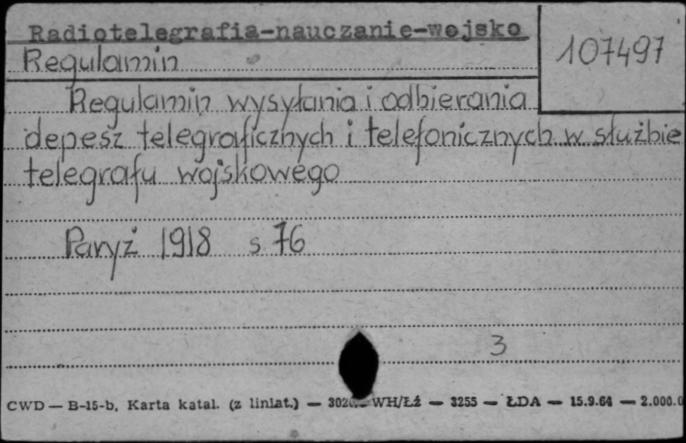 Radiotelegrafia-nauczanie-wojsko
107497
Regulamin
Regulamin wysyłania i odbierania
depesz telegraficznych i telefonicznych w służbie
telegrafu wojskowego
Paryż 1918 s 76
3
CWD — B-15-b. Karta katal. (z liniat.) — WH/Łź — 3255 — ŁDA — 15.9.64 — 2.000.0